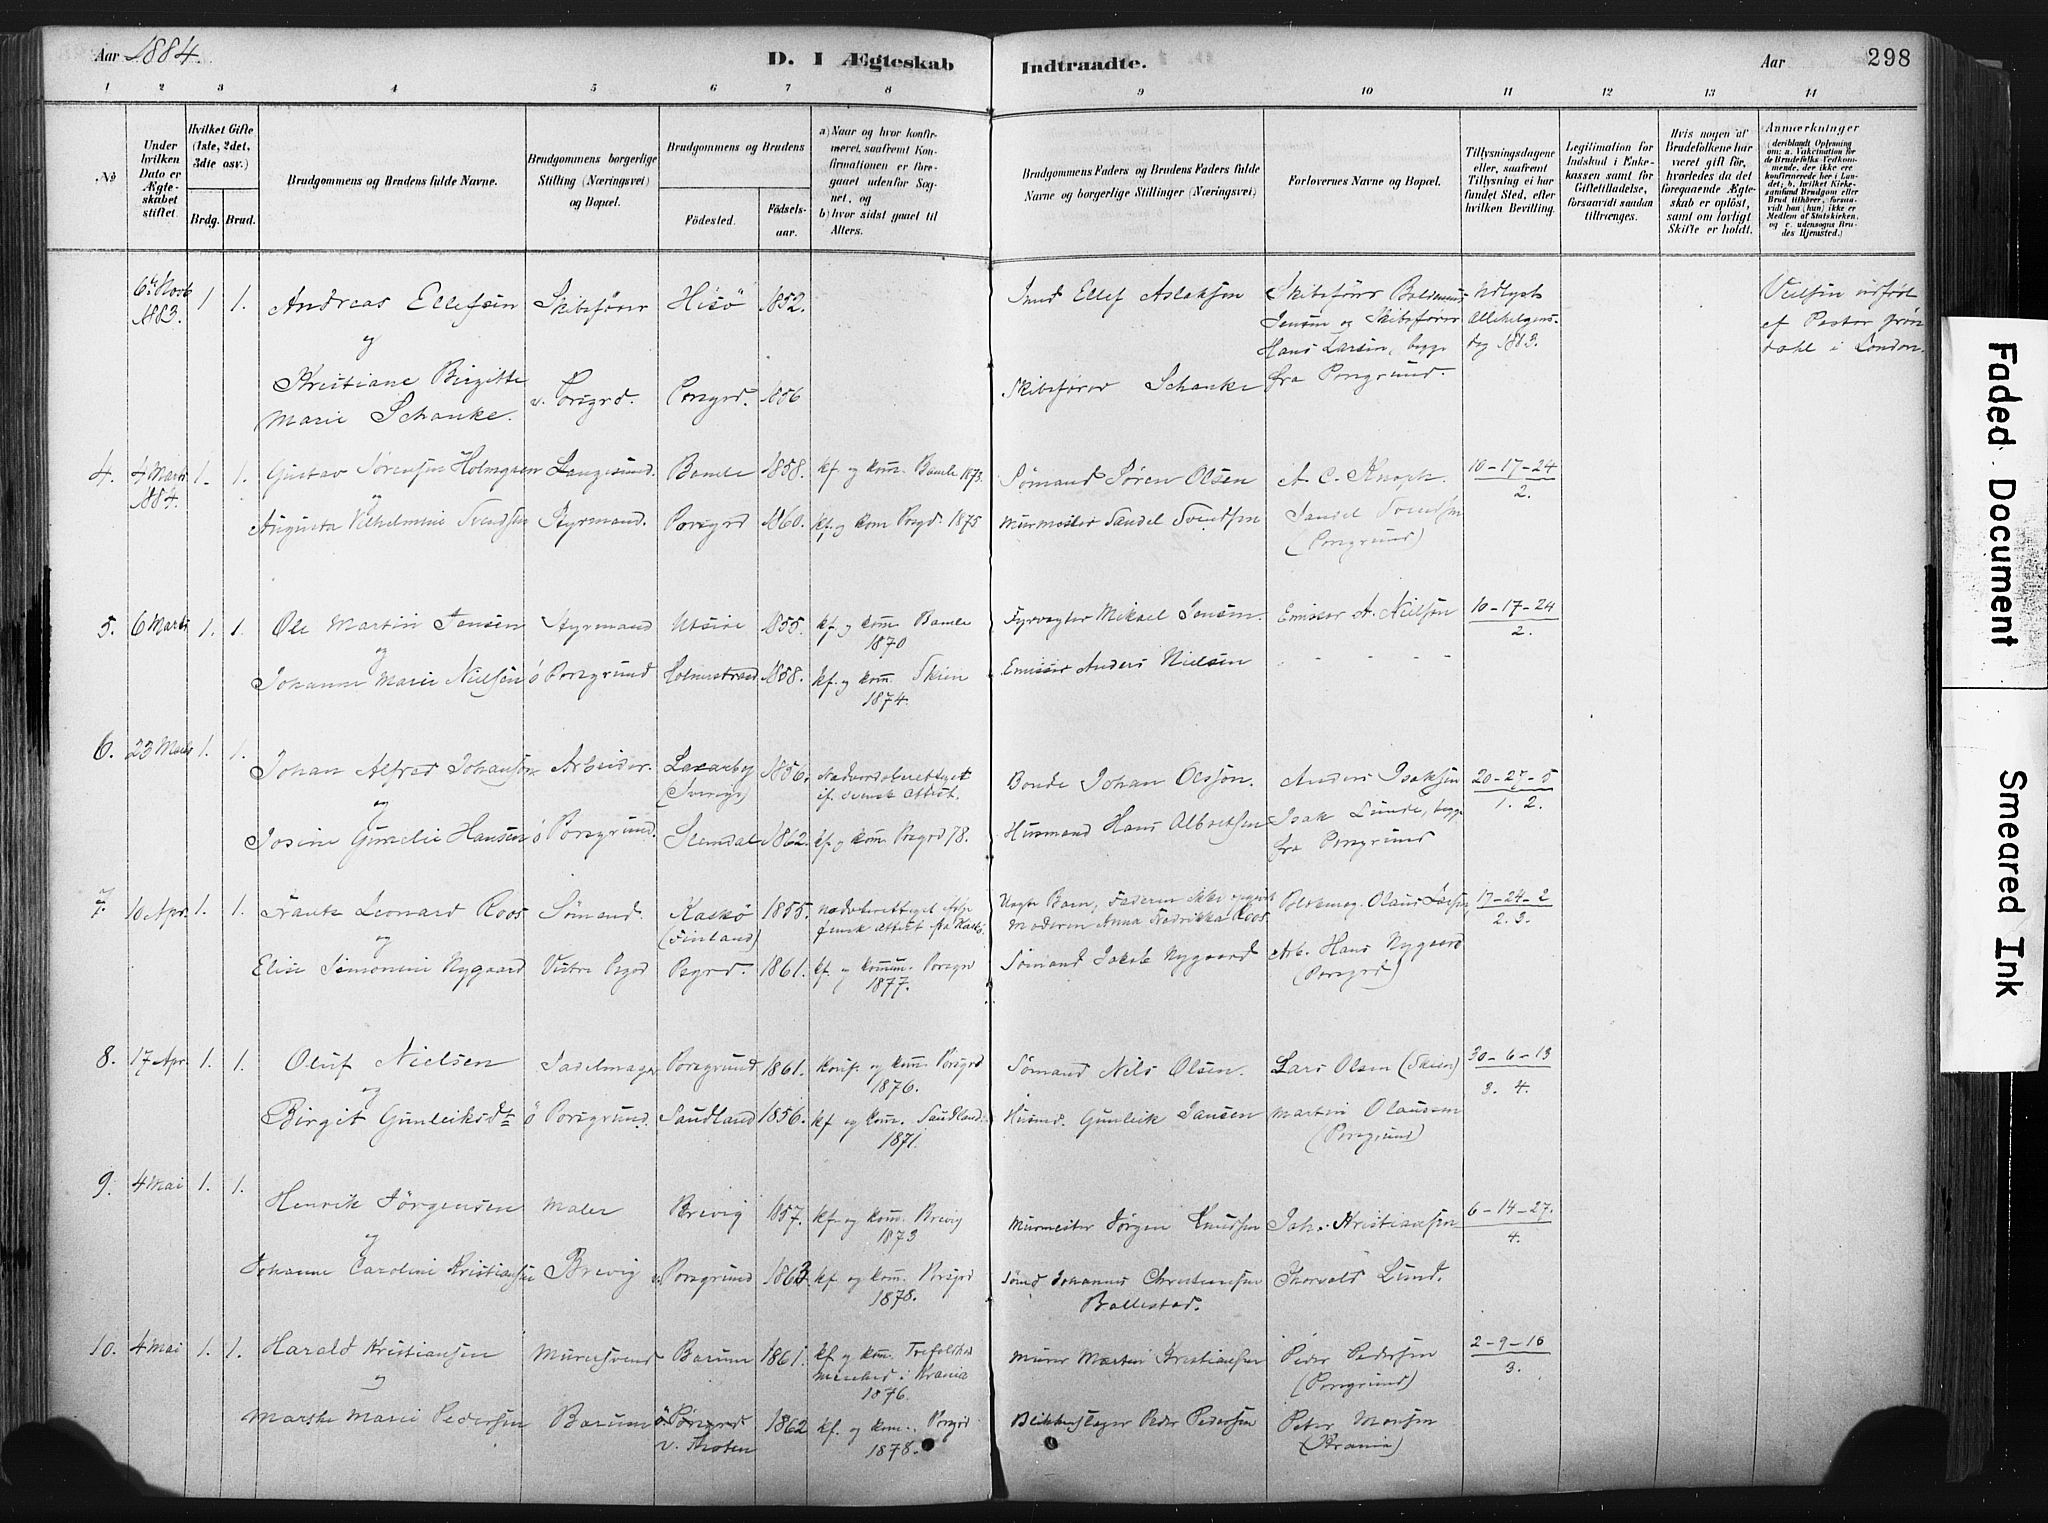 Aar 1884.
D. I Ægteskab Indtraadte.
Aar
298
1 2 3 3 4 5 6 7 8 9 10 11 12 13 14
№
Under hvilken Dato er Ægteskabet stiftet.
Hvilket Gifte (1ste, 2det, 3die osv.)
Brdg. Brud.
Brudgommens og Brudens fulde Navne.
Brudgommens borgerlige Stilling (Næringsvei) og Bopæl.
Brudgommens og Brudens
Fødested.
Fødselsaar.
a) Naar og hvor konfirmeret, saafremt Konfirmationen er foregaaet udenfor Sognet, og
b) hvor sidst gaaet til Alters.
Brudgommens Faders og Brudens Faders fulde Navne og borgerlige Stillinger (Næringsvei)
Forlovernes Navne og Bopæl.
Tillysningsdagene eller, saafremt Tillysning ei har fundet Sted, efter hvilken Bevilling.
Legitimation for Indskud i Enkekassen samt for Giftetilladelse, forsaavidt saadan tiltrænges.
Hvis nogen af Brudefolkene har været gift før, hvorledes da det foregaaende Ægteskab er opløst, samt om lovligt Skifte er holdt.
Anmærkninger (deriblandt Oplysning om: a. Vakcination for de Brudefolks Vedkommende, der ikke ere konfirmerede her i Landet; b. hvilket Kirkesamfund Brudgom eller Brud tilhører, forsaavidt han (hun) ikke er Medlem af Statskirken, og c. udensogns Brudes Hjemsted.)
6te Novb 1883. 1 1. Andreas Ellefsen Skibsfører Hisö 1852. Ellef Aslaksen Skibsfører Jensen og Skibsfører Hans Larsen, begge fra Porsgrund. Udlyst Allehelgensdag 1883. Vielsen udført af Pastor i London.
og
Kristiane Birgitte Marie Schanke. v. Porsgrd. Porsgrd. 1856 Skibsfører Schanke
4. 4 Marts 1884. 1. 1. Gustav Sørensen Holmgren Langesund. Bamle 1858. kf. og kom. Bamle 1873. Sømand Søren Olsen A. C. Knoph. 10-17-24 / 2.
Augusta Vilhelmine Svendsen Styrmand. Porsgrd 1860. kf. og kom Porsgd. 1875 Murmester Sandel Svendsen Sandel Svendsen (Porsgrund)
5. 6 Marts 1. 1. Ole Martin Jensen Styrmand Utsire 1855. kf. og kom. Bamle 1870 Fyrvogter Mikael Jensen. Emissær A. Nielsen 10-17-24 / 2.
og
Johanne Marie Nielsen ö Porsgrund Holmestrand 1858. kf. og kom. Skien 1874. Emissær Anders Nielsen - - - -
6. 23 Marts 1. 1. Johan Alfred Johansson Arbeider. (Sverige) 1856. Nadverdsberettiget if. svensk Attest. Bonde Johan Olsson. Anders Isaksen 20-27-5 / 1. 2.
og
Josine Gurelie Hansen ö Porsgrund. Slemdal 1862. kf. og kom. Porsgrd 78. Husmand Hans Albretsen Isak Lunde, begge fra Porsgrund
7. 16 Apr. 1. 1. Frants Leonard Roos Sømand. Kaskö (Finland) 1855. Uægte Barn, Faderen ikke opgivet Moderen Anna Fredrikka Roos. Olaus Larsen, 17-24-2 / 2. 3.
og
Elise Simonine Nygaard Vestre Psgrd Psgrd. 1861. kf. og kommun. Porsgrd 1877. Sømand Jakob Nygaard Arb. Hans Nygaard (Porsgrd)
8. 17 Apr. 1. 1. Oluf Nielsen Sadelmager Porsgrund 1861. konf. og kom. Porsgrd 1876. Sømand Nils Olsen. Lars Olsen (Skien) 30-6-13 / 3. 4.
og
Birgit Gunleiksdtn ö Porsgrund. Saudland 1856. kf og kom. Saudland. 1871. Husmd. Gunleik Jansen Martin Olaussen (Porsgrund)
9. 4 Mai 1. 1. Henrik Jørgensen Maler Brevig 1857. kf. og kom. Brevig 1873 Murmester Jørgen Knudsen Joh. Kristiansen 6-14-27. / 4.
og
Johanne Caroline Kristiansen Brevig v. Porsgrund 1863 kf. og kom. Porsgrd 1878. Sømd Johannes Christiansen Ballestad. Thorvald Lund.
10. 4 Mai 1. 1. Harald Kristiansen Mursvend Bærum 1861. kf. og kom. Trefoldighed Menighed i Krania 1876. Murer Martin Kristiansen Peder Pedersen (Porsgrund) 2-9-16 / 3.
og
Marthe Marie Pedersen Bærum ö Porsgrd v. Thoten 1862 kf. og kom. Porsgrd 1878. Blikkenslager Peder Pedersen Peter Monsen (Krania)
Faded Document
Smeared Ink